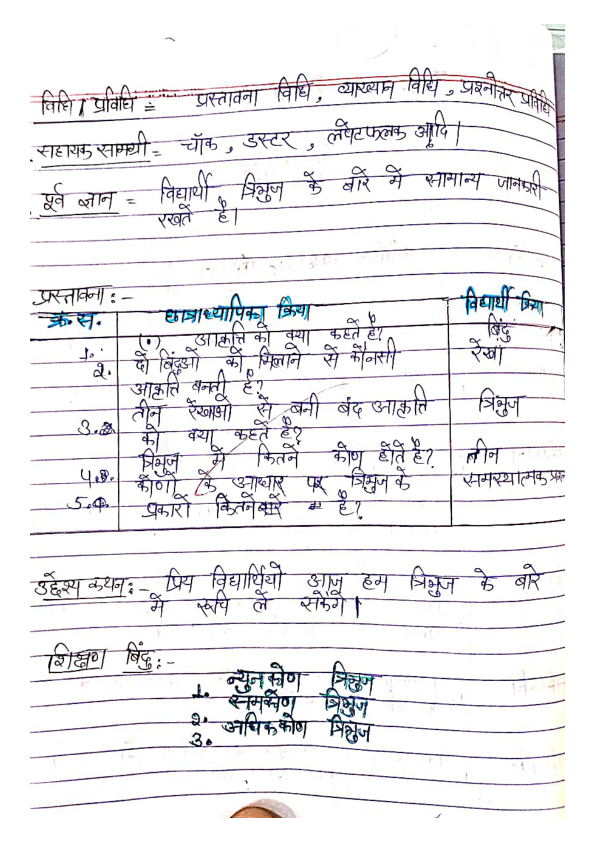 विधि / प्रविधि = प्रस्तावना विधि, व्याख्यान विधि, प्रश्नोत्तर प्रविधि
सहायक सामग्री = चॉक, डस्टर, लपेटफलक आदि।
पूर्व ज्ञान = विद्यार्थी त्रिभुज के बारे में सामान्य जानकारी
रखते है।
प्रस्तावना :-
क्र.स. छात्राध्यापिका क्रिया विद्यार्थी क्रिया
1. (•) आकृति को क्या कहते है? बिंदु
2. दो बिंदुओ को मिलाने से कौनसी रेखा
आकृति बनती है?
3. तीन रेखाओ से बनी बंद आकृति त्रिभुज
को क्या कहते है?
4. त्रिभुज में कितने कोण होते है? तीन
5. कोणों के आधार पर त्रिभुज के समस्यात्मक प्रश्न
प्रकारों कितने है?
उद्देश्य कथन :- प्रिय विद्यार्थियो आज हम त्रिभुज के बारे
में रूचि ले सकेगे।
शिक्षण बिंदु :-
1. न्युनकोण त्रिभुज
2. समकोण त्रिभुज
3. अधिककोण त्रिभुज